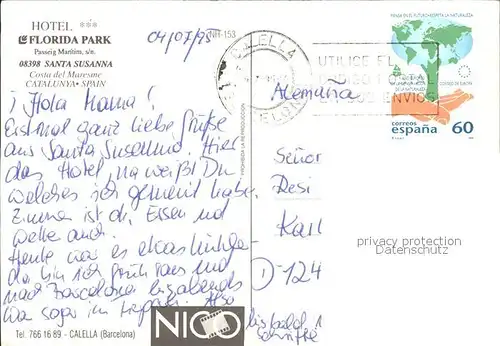 HOTEL ***
FLORIDA PARK
Passeig Marítim, s/n.
08398 SANTA SUSANNA
Costa del Maresme
CATALUNYA • SPAIN
04/07/95
NH-153
CALELLA
BARCELONA
UTILICE EL
CODIGO POSTAL
EN SUS ENVIOS
PIENSA EN EL FUTURO. RESPETA LA NATURALEZA
correos
españa
60
¡ Hola Mama !
Erstmal ganz liebe Grüße
aus Santa Susanna. Hier
das Hotel, na weißt Du
welches ich gemeint habe.
Zimmer ist ok, Essen und
Wetter auch.
Heute war es etwas
da bin ich früh raus und
nach Barcelona
war sogar im Also
bis bald
Alemaña
Señor
Resi
Karl
D-124
PROHIBIDA LA REPRODUCCION
privacy protection
Datenschutz
NICO
Tel. 766 16 89 - CALELLA (Barcelona)